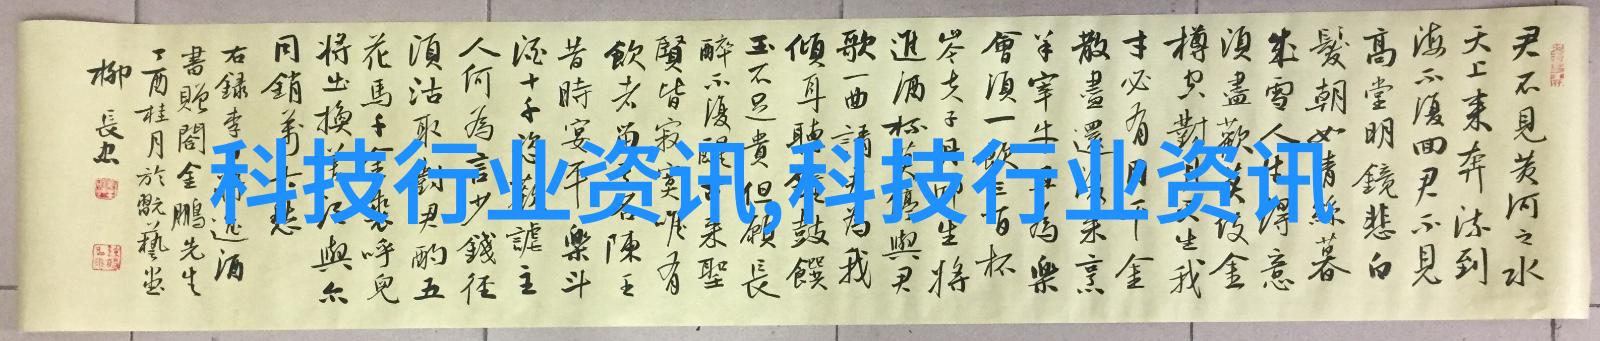 君不見黄河之水
天上来奔流到
海不復回君不見
高堂明鏡悲白
髮朝如情絲暮
成雪人生得意
須盡歡莫使金
樽空對月天生我
才必有用千金
散盡還復来烹
羊宰牛且為樂
會須一飲三百杯
岑夫子丹丘生將
進酒杯莫停與君
歌一曲請君為我
傾耳聽鐘鼓饌
玉不足貴但願長
醉不復醒古来聖
賢皆寂寞唯有
飲者留其名陳王
昔時宴平樂斗
酒十千恣歡謔主
人何為言少錢徑
須沽取對君酌五
花馬千金裘呼兒
將出換美酒與尔
同銷萬古愁
右録李白將進酒
書贈閤金鵬先生
丁酉桂月於翫藝堂
柳長忠
科技行业资讯,科技行业资讯